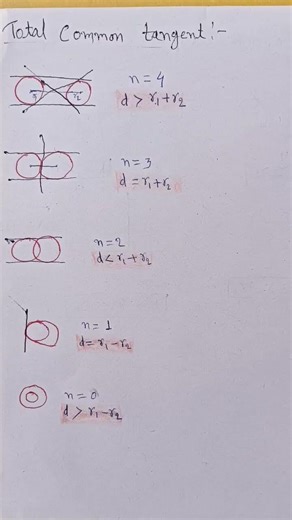 Total Common tangent :-
r₁ r₂
n = 4
d > r₁+r₂
n = 3
d = r₁+r₂
n = 2
d < r₁+r₂
n = 1
d = r₁-r₂
n = 0
d > r₁-r₂